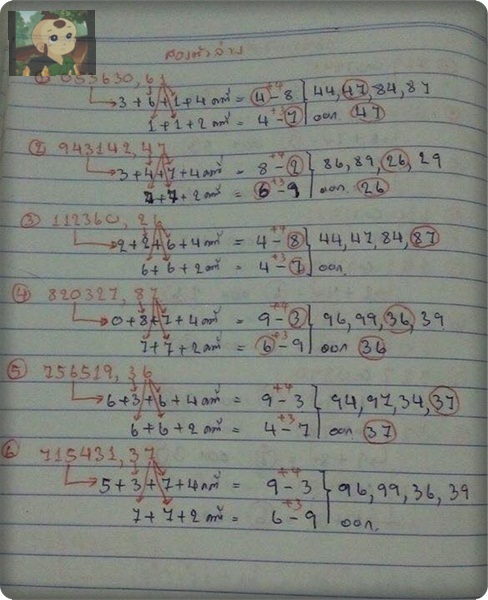 สองตัวล่าง
① 053630, 61
3+6+1+4 คงที่ = 4-8 } 44, 47, 84, 87
+4
1+1+2 คงที่ = 4-7 } ออก 47
+3
② 943142, 47
3+4+7+4 คงที่ = 8-2 } 86, 89, 26, 29
+4
7+7+2 คงที่ = 6-9 } ออก 26
+3
③ 112360, 26
2+2+6+4 คงที่ = 4-8 } 44, 47, 84, 87
+4
6+6+2 คงที่ = 4-7 } ออก
+3
④ 820327, 87
0+8+7+4 คงที่ = 9-3 } 96, 99, 36, 39
+4
7+7+2 คงที่ = 6-9 } ออก 36
+3
⑤ 756519, 36
6+3+6+4 คงที่ = 9-3 } 94, 97, 34, 37
+4
6+6+2 คงที่ = 4-7 } ออก 37
+3
⑥ 715431, 37
5+3+7+4 คงที่ = 9-3 } 96, 99, 36, 39
+4
7+7+2 คงที่ = 6-9 } ออก.
+3